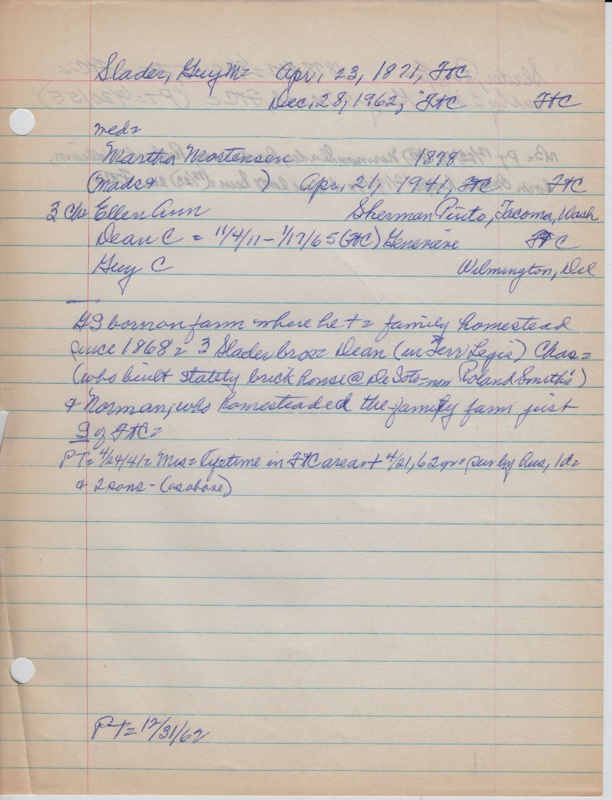 Slader, Guy M= Apr, 23, 1871, FtC
Dec, 28, 1962, FtC FtC
med=
Martha Mortensen 1878
(Mads + ) Apr, 21, 1941, FtC FtC
3 c/o Ellen Ann Sherman Pinto, Tacoma, Wash
Dean C = 11/4/11 - 1/17/65 (FtC) Genevieve FtC
Guy C Wilmington, Del
GS born on farm where he += family homestead
since 1868= 3 Slader bros= Dean (in Terr Legis) Chas=
(who built stately brick house @ DeSoto= now Roland Smith's)
+ Norman, who homesteaded the family farm just
S of FtC=
PT= 4/24/41= Mrs= lifetime in FtC area + 4/21, 62 yr= sur by hus, 1 d=
+ 2 sons - (as above)
PT= 12/31/62